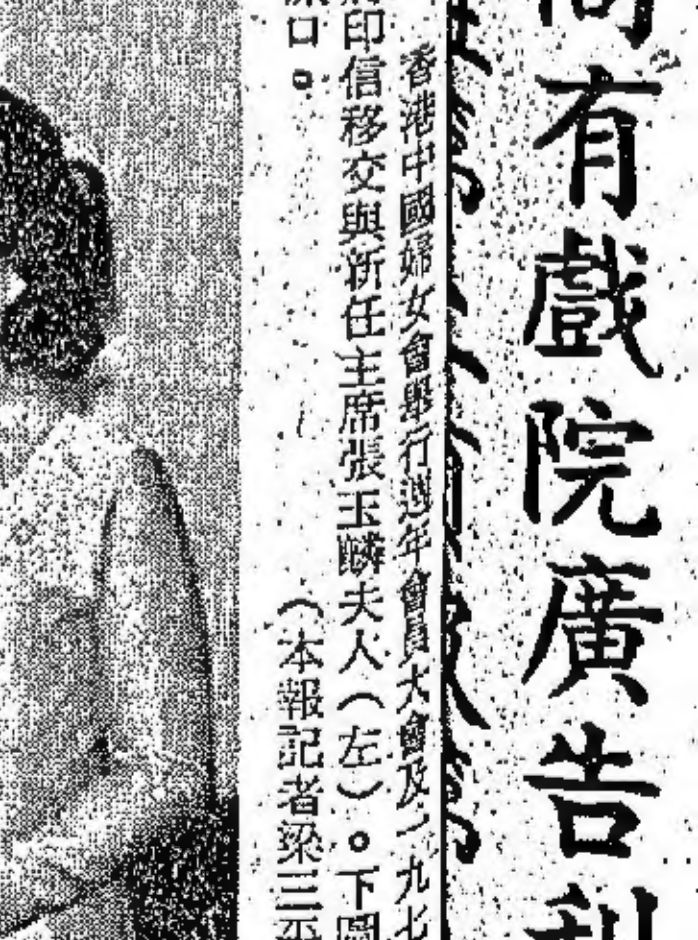 有戲院廣告
香港中國婦女會舉行週年會員大會及一九七
印信移交與新任主席張玉麟夫人（左）。下圖
口。
（本報記者梁三